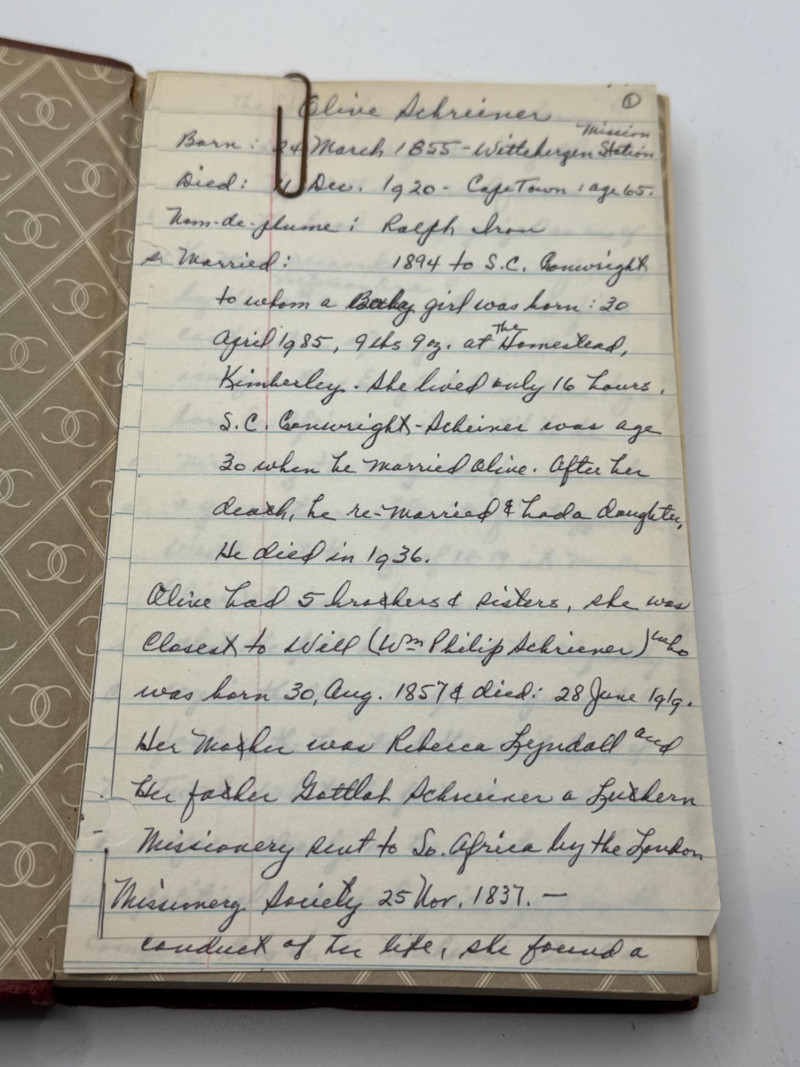 ①
Olive Schreiner
Born: 24 March 1855 - Wittebergen Mission Station
Died: 11 Dec. 1920 - Cape Town : age 65.
Nom-de-plume : Ralph Iron
Married: 1894 to S.C. Conwright
to whom a Baby girl was born : 30
April 1985, 9 lbs 9 oz. at The Homestead,
Kimberley. She lived only 16 hours.
S.C. Conwright-Scheiner was age
30 when he married Olive. After her
death, he re-married & had a daughter,
He died in 1936.
Olive had 5 brothers & sisters, she was
closest to Will (Wm Philip Schriener) who
was born 30, Aug. 1857 & died: 28 June 1919.
Her Mother was Rebecca Lyndall and
Her father Gottlob Schreiner a Luthern
Missionery sent to So. Africa by the London
Missionery Society 25 Nov. 1837. —
conduct of her life, she found a